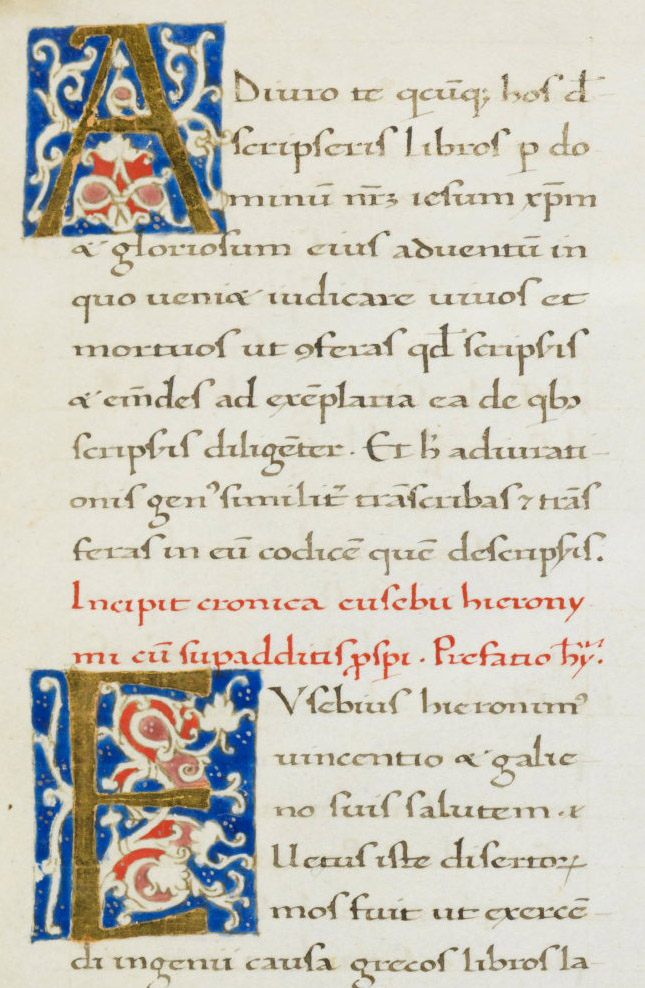 ADiuro te qcūq; hos d̄
scripseris libros p do
minū nr̄ꝫ iesum xp̄m
& gloriosum eius aduentū in
quo ueni& iudicare uiuos et
mortuos ut ꝯferas qd̄ scripsis
& em̄des ad exēplaria ea de qbꝫ
scripsis diligēter. Et h̄ adiurati
onis genꝰ similit̄ trāscribas ⁊ trās
feras in eū codicē quē descripsis.
Incipit cronica eusebii hierony
mi cū supadditis ꝓspi. Prefatio hy̅.
EVsebius hieronimꝰ
uincentio & galie
no suis salutem.
Uetus iste disertoꝝ
mos fuit ut exercē
di ingenii causa grecos libros la